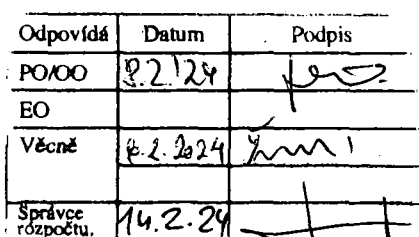 Odpovídá Datum Podpis
PO/OO 8.2.24
EO
Věcně 8.2.2024
Správce
rozpočtu, 14.2.24